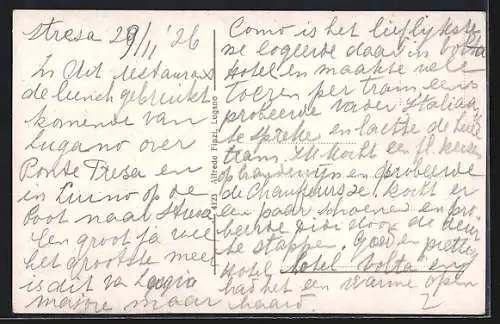 Stresa 29/11 '26
In dit restaurant
de lunch gebruikt
komende van
Lugano over
Ponte Tresa en
in Luino op de
boot naar Stresa
Een groot ja wel
het grootste meer
is dit va Lagia
majore maar
4123 Alfredo Finzi, Lugano
Como is het lieflykste
we logeerde daar in Volta
Hotel en maakte vele
toeren per tram, eens
probeerde vader Italiaan
te spreke en lachte de heele
tram. Hy kocht een fl. kersen
brandewyn en probeerde
de Chauffeurs de kocht er
een paar schoenen en pro-
beerde door de deur
te stappen. goed en prettig
Hotel Hotel Volta en
had het een warme open
haard.